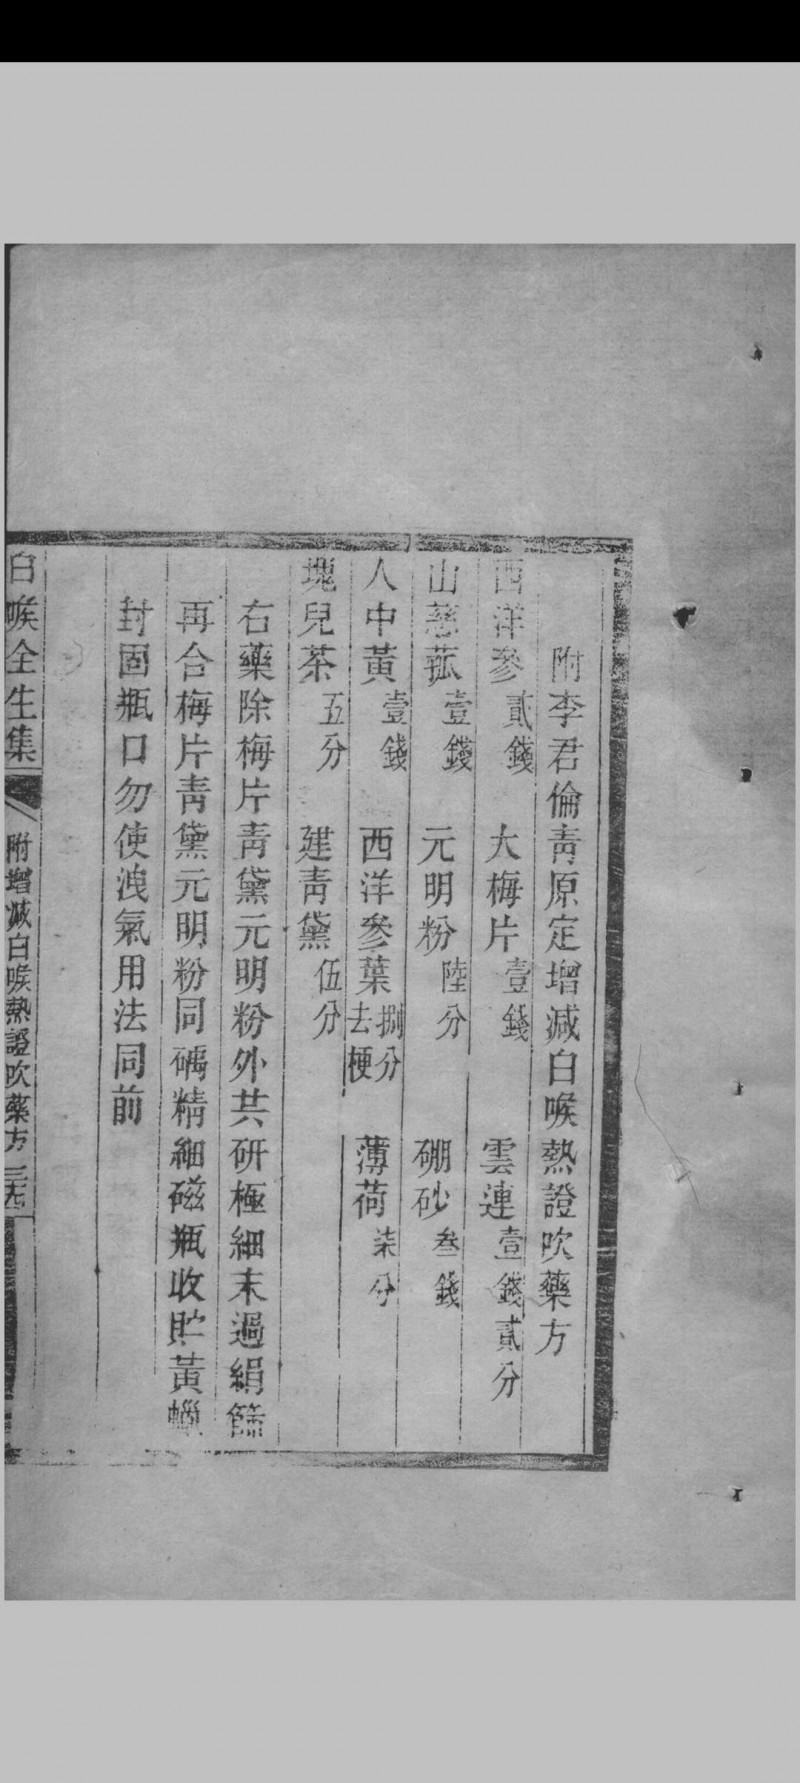 附李君倫青原定增減白喉熱證吹藥方
西洋參貳錢 大梅片壹錢 雲連壹錢貳分
山慈菰壹錢 元明粉陸分 硼砂叁錢
人中黃壹錢 西洋參葉捌分去梗 薄荷柒分
塊兒茶五分 建青黛伍分
右藥除梅片青黛元明粉外共研極細末過絹篩
再合梅片青黛元明粉同碾精細磁瓶收貯黃蠟
封固瓶口勿使洩氣用法同前
白喉全生集 附增減白喉熱證吹藥方 三四